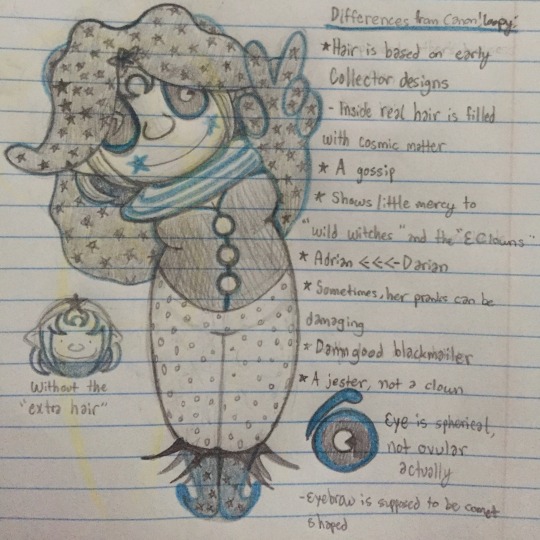 Differences from Canon! Loopy:
* Hair is based on early
Collector designs
- Inside real hair is filled
with cosmic matter
* A gossip
* Shows little mercy to
"wild witches" and the "E Clowns"
* Adrian <<<- Darian
* Sometimes, her pranks can be
damaging
* Damn good blackmailer
* A jester, not a clown
Eye is spherical,
not ovular
actually
- Eyebrow is supposed to be comet
shaped
Without the
"extra hair"